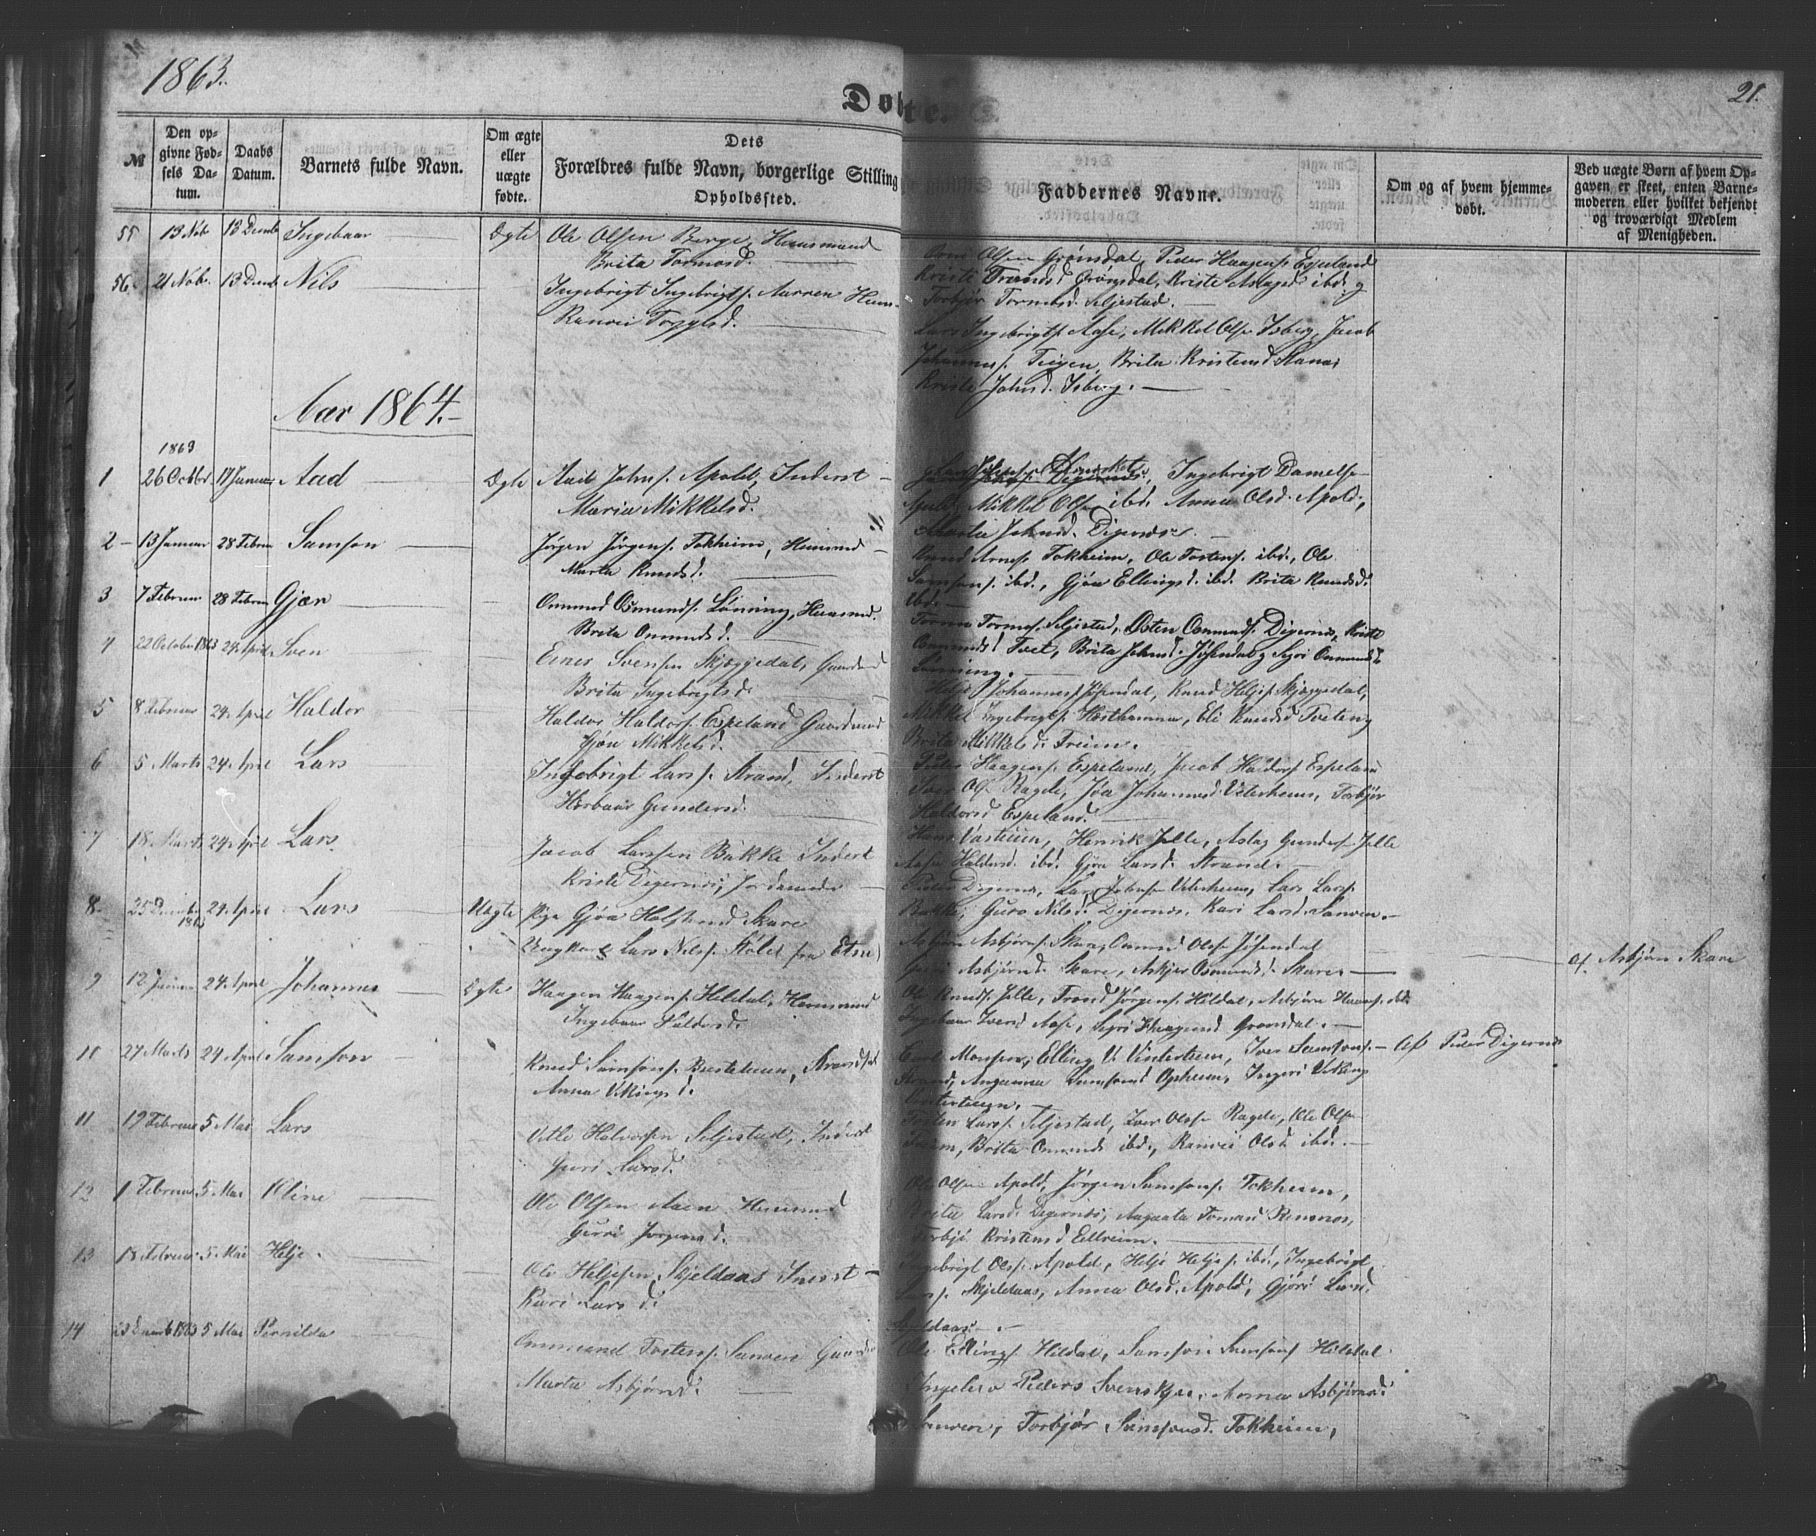 1863.
Døbte.
21.
№
Den opgivne Fødsels Datum.
Daabs Datum.
Barnets fulde Navn.
Om ægte eller uægte fødte.
Dets Forældres fulde Navn, borgerlige Stilling Opholdssted.
Faddernes Navne.
Om og af hvem hjemmedøbt.
Ved uægte Børn af hvem Opgaven er skeet, enten Barnemoderen eller hvilket bekjendt og troværdigt Medlem af Menigheden.
55 13 Nob 13 Decemb Ingebaar Ægte Ole Olsen Berge, Huusmand
Brita Tormosd.
Arne Olsen Grønsdal, Peder Haagens. Espeland
Kristi Tronds Grønsdal, Kriste Aslags ibd. og
Torbjør Tormosd. Seljestad.
56 21 Nob. 13 Decemb Nils Ingebrigt Ingebrigts. Aarren Huus
Ranvei Torgylsd.
Lars Ingebrigts. Aase, Mikkel Ols. Isberg, Jacob
Johannes. Teigen, Brita Kristensd
Kriste Johnsd. Isberg.
Aar 1864.
1863
1 26 Octobr 17 Januar Aad Ægte Aad Johns. Apold, Inderst
Maria Mikkelsd.
Ingebrigt Daniels.
Apold, Mikkel Ols. ibd. Anna Olsd. Apold,
Marta Johnsd. Digernæs.
2 13 Januar 28 Febru Samson Jørgen Jørgens. Tokheim, Huusmd
Marta Knudsd.
Arnes. Tokheim, Ole Tostens. ibd., Ole
Samsons. ibd., Gjøa Ellingsd. ibd. Brita Knudsd.
ibd.
3 7 Februar 28 Febru Gjøn Ommund Osmunds. Lønning, Huusmd.
Brita Ommundsd.
Tormo Tormos. Seljestad, Osten Osmunds. Digernes, Kriste
Ommundsd Tvet, Brita Johnsd. Jøsendal og Syri Ommundsd
Lønning.
4 22 October 1863 24 April Sven Svensen Skjæggedal, Gaardmd
Brita Ingebrigtsd.
Helje Johannes. Jøsendal, Knud Heljes. Skjæggedal,
Mikkel Ingebrigts. Hosthammer, Eli Knudsd Tveten og
Brita Mikkelsd. Freim.
5 8 Februar 24 April Haldor Haldor Haldors. Espeland Gaardmd
Gjøa Mikkelsd.
Peder Haagens. Espeland, Jacob Haldors. Espeland
Iver Ols. Ragde, Jøa Johannesd. Veterheim, Torbjør
Haldorsd Espeland.
6 5 Marts 24 April Lars Ingebrigt Lars s. Strand, Inderst
Herbaar Gundersd.
Hans Vasteun, Henrik Jelle, Aslag Gunders. Jelle
Aase Haldorsd. ibd. Gjøa Larsd. Strand.
7 18 Marts 24 April Lars. Jacob Larssen Bakke Inderst
Kriste Digernes, Jordemoder
Peder Digernes, Lars Johns. Veterheim, Lars Lars.
Bakke, Guro Nilsd. Digernes, Kari Larsd. Sanven.
8 25 December 1863 24 April Lars Uægte Pige Gjøa Skare
Ungkarl Lars Nils. Støle fra Etne
Asbjørn Asbjørns. Skare, Ommund Ols. Jøsendal
Asbjørnsd. Skare, Osmundsd. Skare.
af Asbjøn Skare
9 12 Januar 24 April Johannes Ægte Haagen Haagens. Hildal, Huusmand
Ingebaar Haldorsd.
Ole Knuds. Jelle, Trond Jørgens. Hildal, Asbjørn Hans. ibd.
Ingebaar Iversd Aase, Syri Haagensd Grønsdal.
10 27 Marts 24 April Samson Knud Samsons. Bustetun, Strandsid
Anna Vikingsd.
Monsen, Elling V. Vintertun, Iver Samsons.
Strand, Samsonsd Opheim, Ingeri Viking
Vintertun.
Af Peder Digernes
11 19 Februar 5 Mai Lars Vetle Halvorsen Seljestad, Inderst
Guri Larsd.
Tosten Lars. Seljestad, Iver Ols. Ragde, Ole Ols.
Freim, Brita Ommunds ibd., Ranvei Olsd. ibd.
12 1 Februar 5 Mai Oline Ole Olsen Aaen Huusmand
Guroi Jørgensd.
Ole Ols. Apold, Jørgen Samsons. Tokheim,
Brita Larsd. Digernes, Augusta
Torbjø Kristensd Eitreim.
13 18 Februar 5 Mai Helje. Ole Heljesen Skjeldaas Inerst
Kari Larsd.
Ingebrigt Ols. Apold, Helje Heljes. ibd., Ingebrigt
Lars. Skjeldaas, Anna Olsd. Apold, Gjøri Larsd.
Skjeldaas.
14 23 Decemb 1863 5 Mai Pernilda Ommund Tostens. Sanven Gaardmd
Marta Asbjørnsd.
Ole Ellings. Hildal, Samson Samsons Hildal
Peders Svensker, Anna Asbjørnsd.
Sanven, Torbjør Samsonsd. Tokheim,